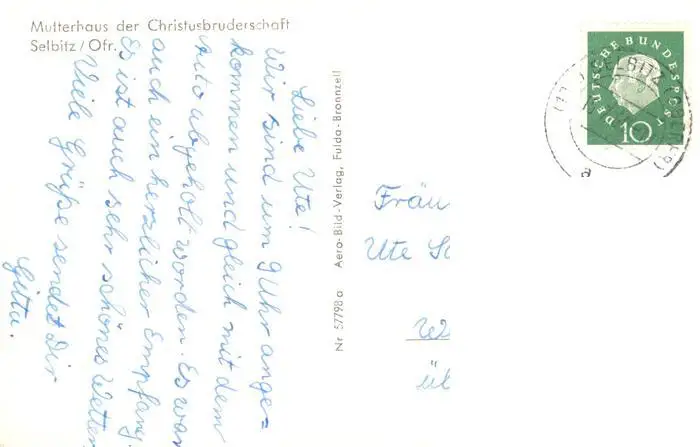 Mutterhaus der Christusbruderschaft
Selbitz/Ofr.
Liebe Ute!
Wir sind um 9 Uhr ange=
kommen und gleich mit dem
Auto abgeholt worden. Es war
auch ein herzlicher Empfang.
Es ist auch sehr schönes Wetter
Viele Grüße sendet Dir
Gitta.
Nr 57798a Aero-Bild-Verlag, Fulda-Bronnzell
DEUTSCHE BUNDESPOST
10
a
Fräu
Ute Sc